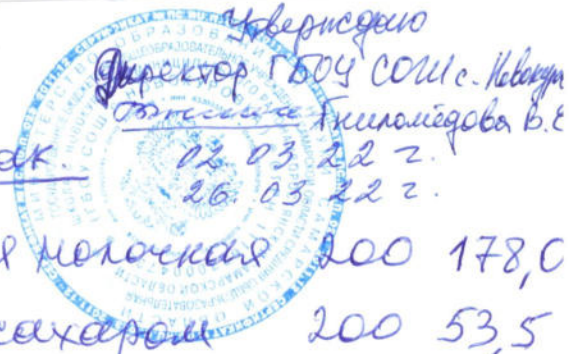 Утверждаю
Директор ГБОУ СОШ с. Новокур
Гниломёдова В.Е
ак. 02 03 22 г.
26. 03 22 г.
я молочная 200 178,0
сахаром 200 53,5